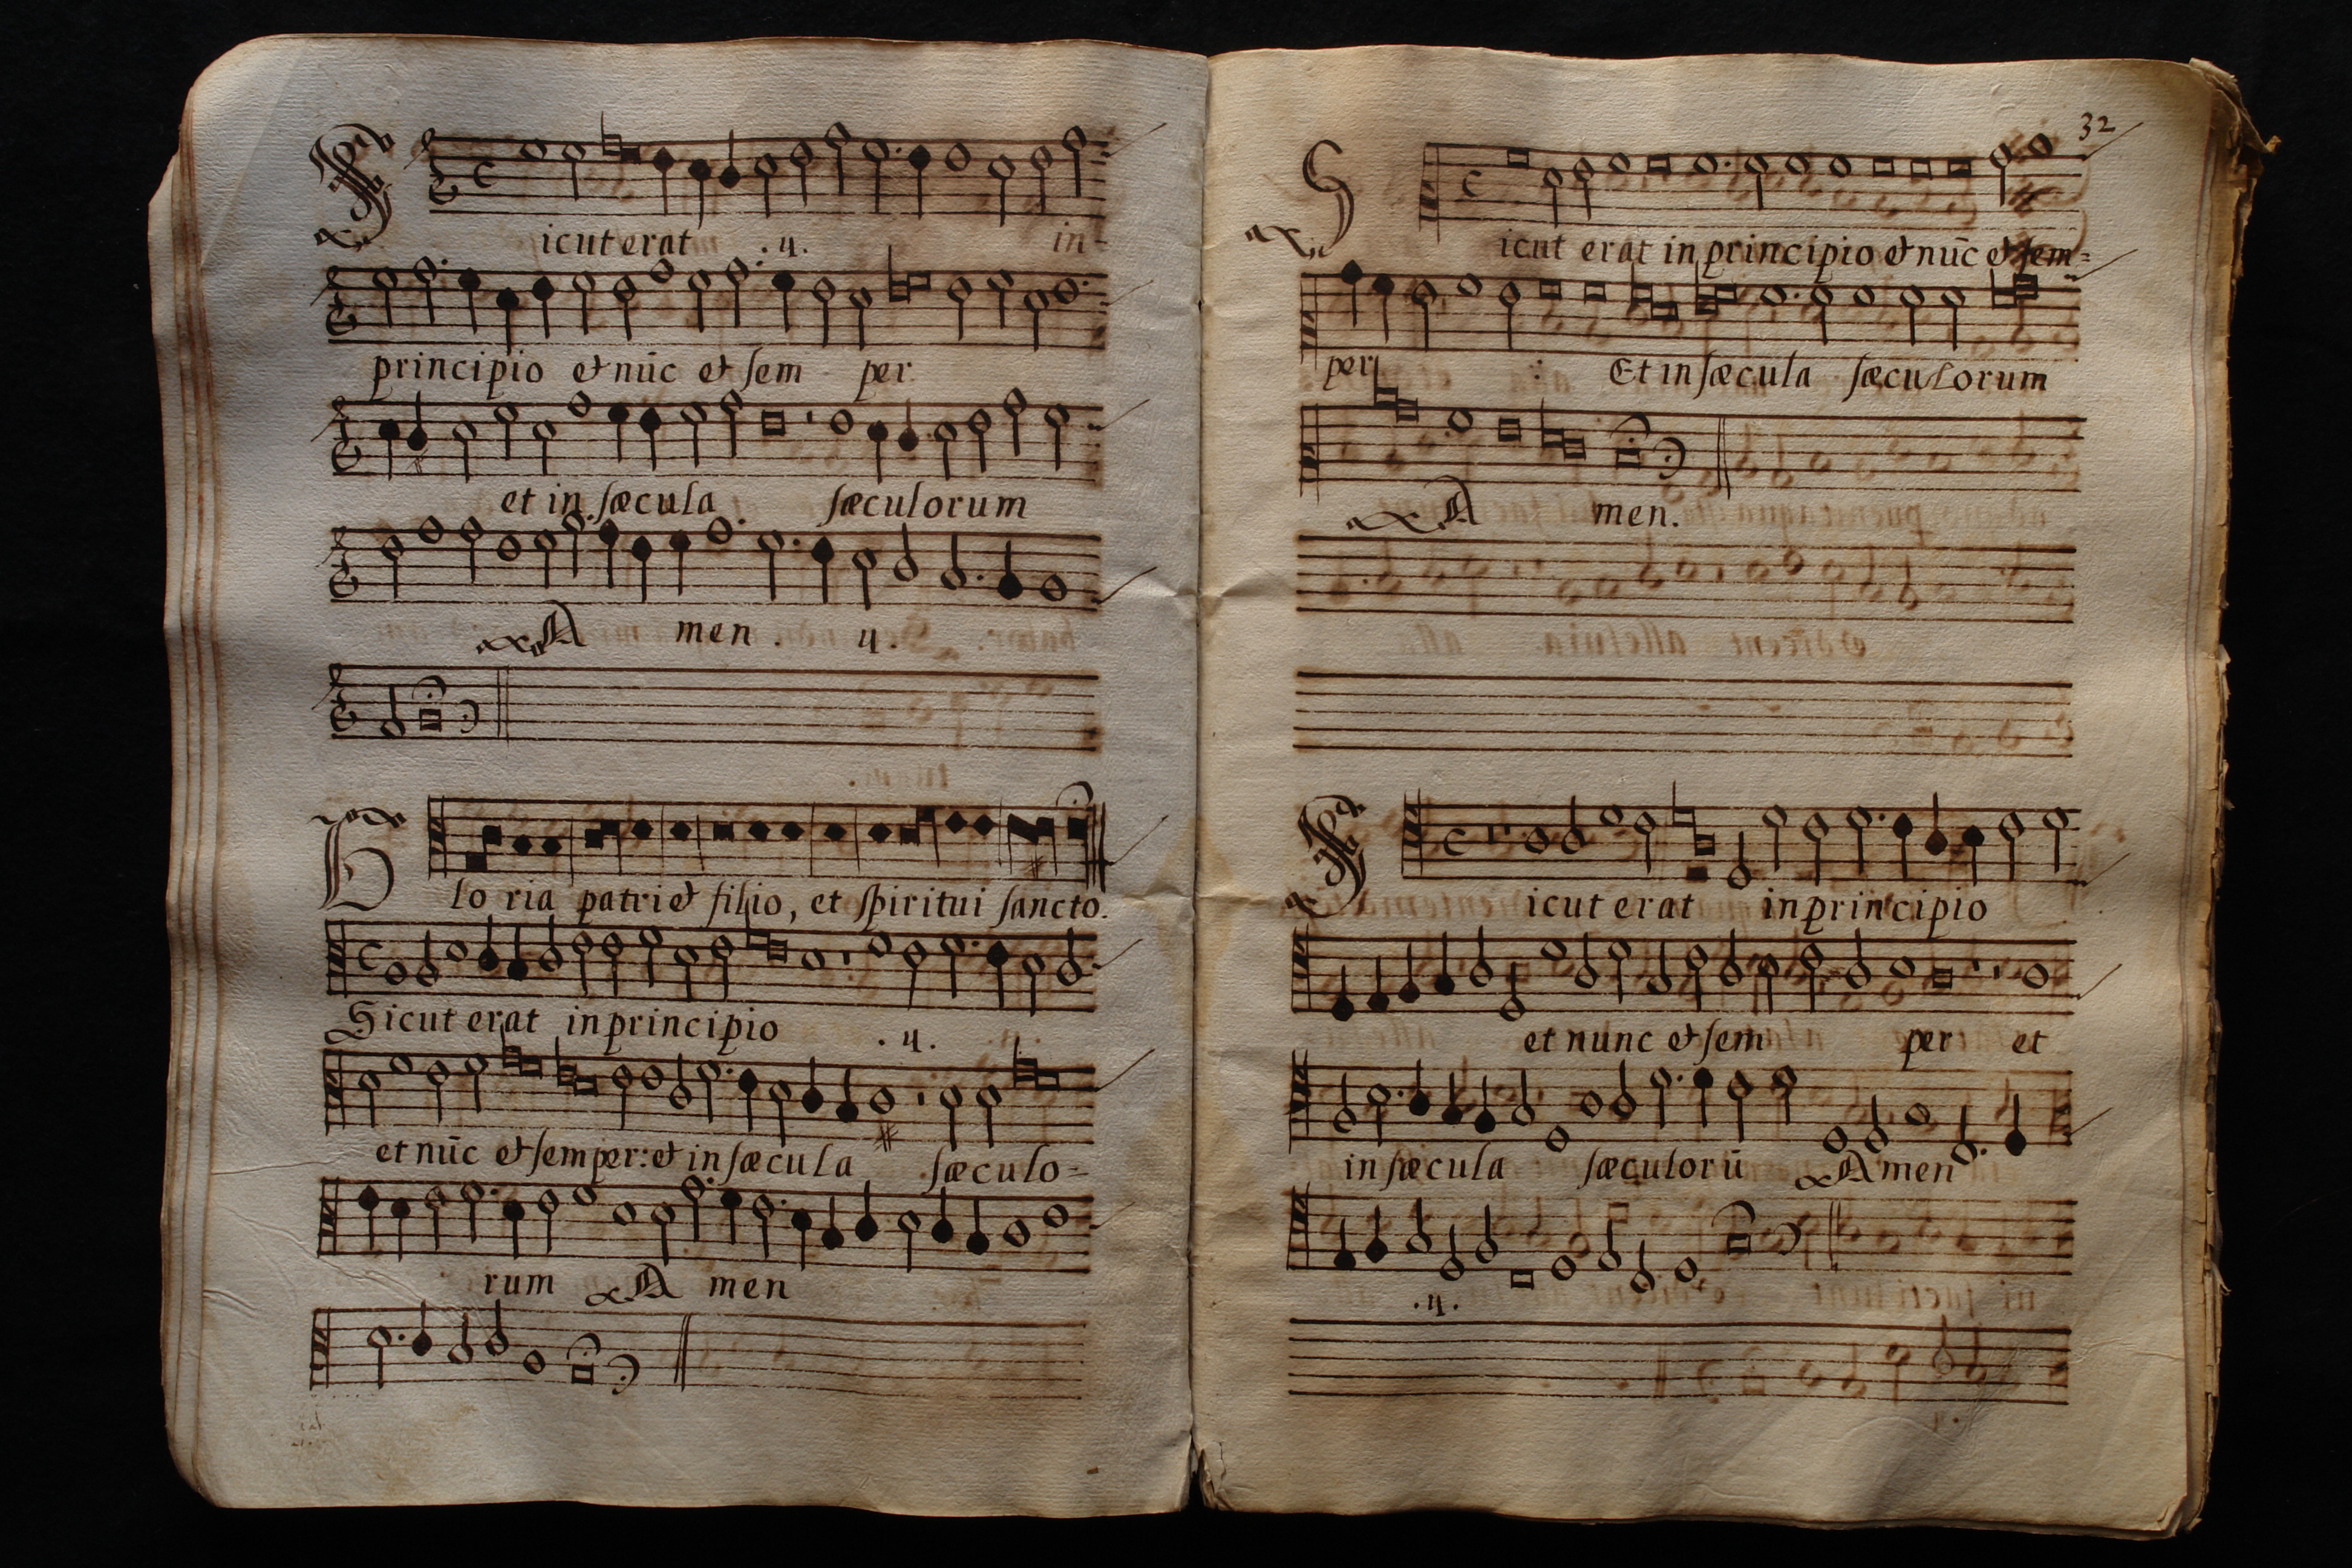 Sicut erat .ij. in-
principio et nūc et sem per
et in sæcula sæculorum
Amen . ij.
Gloria patri et filio, et spiritui sancto.
Sicut erat in principio .ij.
et nūc et semper: et in sæcula sæculo-
rum Amen
32
Sicut erat in principio et nūc et sem=
per : Et in sæcula sæculorum
Amen.
Sicut erat in principio
et nunc et sem per et
in sæcula sæculorū Amen
.ij.